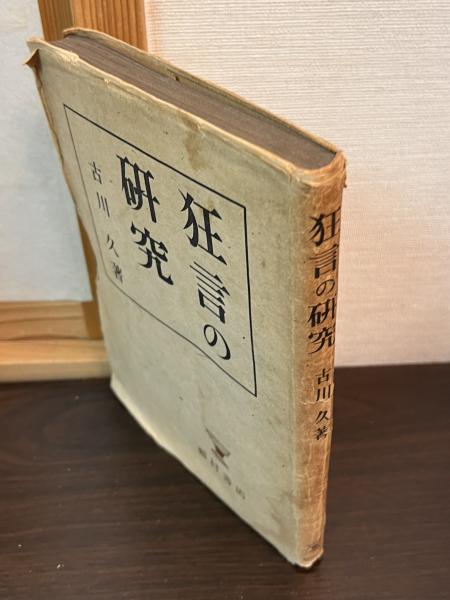 狂言の
研究
古川久著
狂言の研究
古川久著